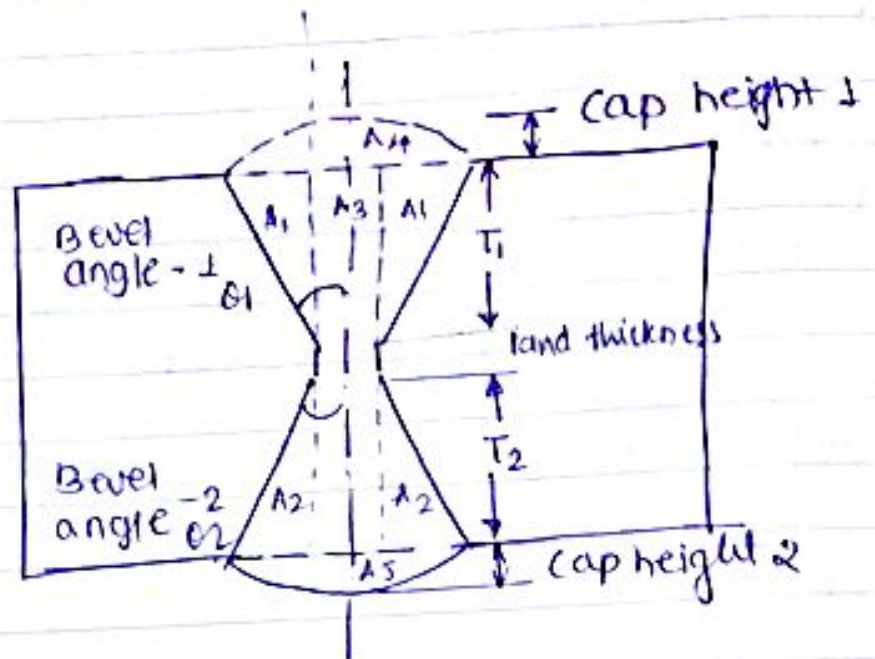 Cap height 1
A4
A1
A3
A1
T1
Bevel
angle - 1
θ1
land thickness
T2
Bevel
angle -2
θ2
A2
A2
A5
Cap height 2